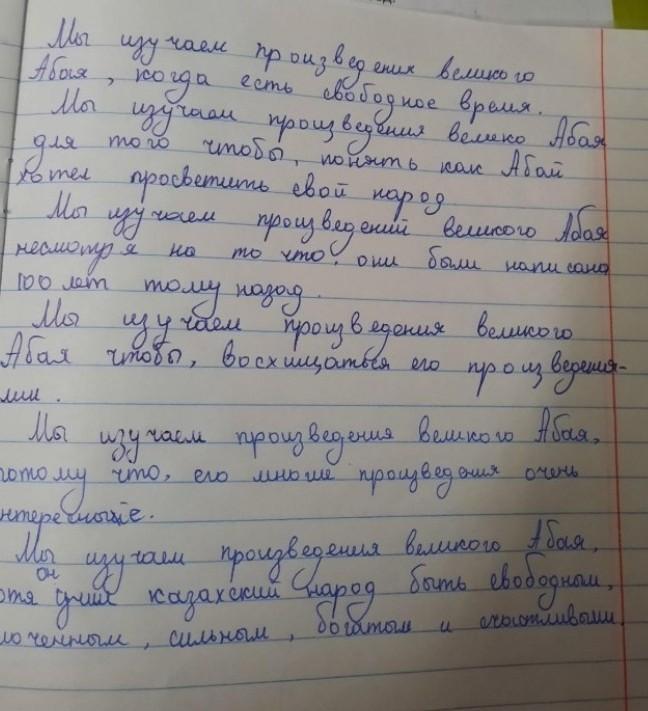 Мы изучаем произведения великого
Абая, когда есть свободное время.
Мы изучаем произведения велико Абая
для того чтобы, понять как Абай
хотел просветить свой народ
Мы изучаем произведений великого Абая
несмотря на то что, они были написана
100 лет тому назад.
Мы изучаем произведения великого
Абая чтобы, восхищаться его произведения-
ми.
Мы изучаем произведения великого Абая,
потому что, его многие произведения очень
нтересные.
Мы изучаем произведения великого Абая,
отя он учил казахский народ быть свободным,
лоченным, сильным, богатым и счастливыми.